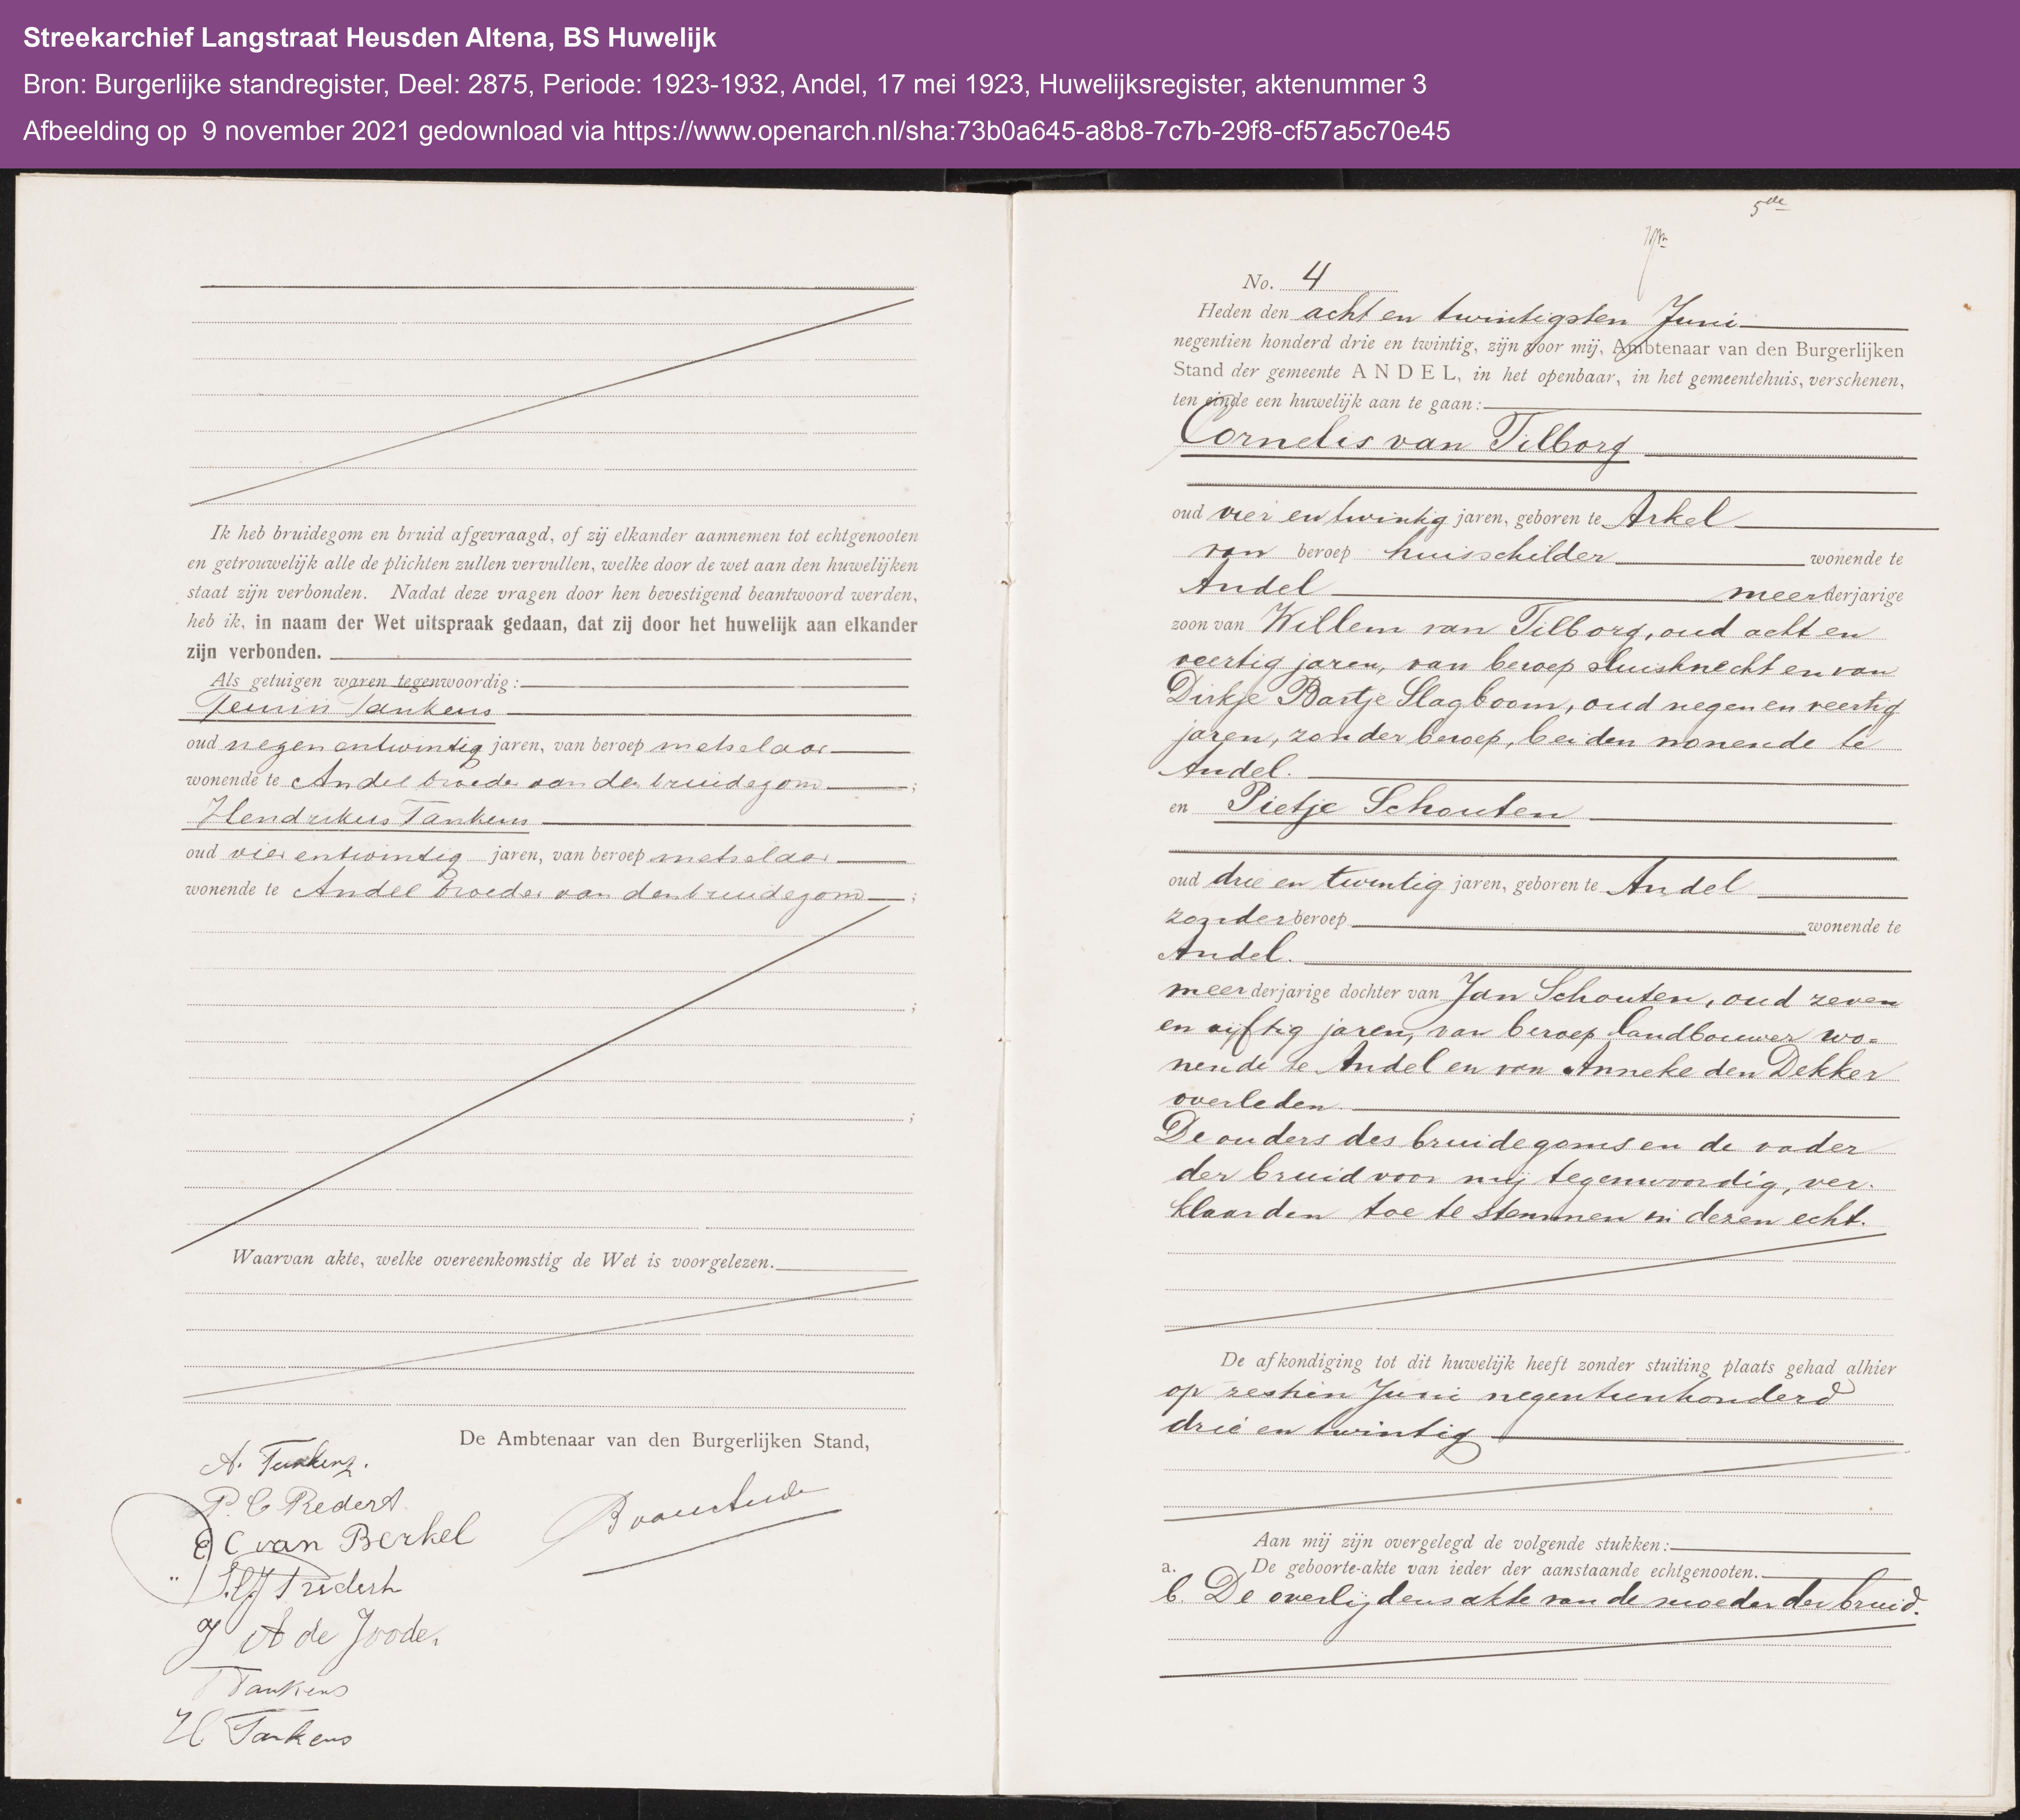 Streekarchief Langstraat Heusden Altena, BS Huwelijk
Bron: Burgerlijke standregister, Deel: 2875, Periode: 1923-1932, Andel, 17 mei 1923, Huwelijksregister, aktenummer 3
Afbeelding op  9 november 2021 gedownload via https://www.openarch.nl/sha:73b0a645-a8b8-7c7b-29f8-cf57a5c70e45
Ik heb bruidegom en bruid afgevraagd, of zij elkander aannemen tot echtgenooten
en getrouwelijk alle de plichten zullen vervullen, welke door de wet aan den huwelijken
staat zijn verbonden. Nadat deze vragen door hen bevestigend beantwoord werden,
heb ik, in naam der Wet uitspraak gedaan, dat zij door het huwelijk aan elkander
zijn verbonden.
Als getuigen waren tegenwoordig:
Tankens
oud negen entwintig jaren, van beroep metselaar
wonende te Andel broeder van den bruidegom ;
Hendrikus Tankens
oud vier entwintig jaren, van beroep metselaar
wonende te Andel broeder van den bruidegom ;
;
;
Waarvan akte, welke overeenkomstig de Wet is voorgelezen.
De Ambtenaar van den Burgerlijken Stand,
A. Tankens.
P. C Redert
C van Berkel
A de Joode.
T Tankens
H Tankens
5de
No. 4
Heden den acht en twintigsten Juni
negentien honderd drie en twintig, zijn voor mij, Ambtenaar van den Burgerlijken
Stand der gemeente ANDEL, in het openbaar, in het gemeentehuis, verschenen,
ten einde een huwelijk aan te gaan:
Cornelis van Tilborg
oud vier en twintig jaren, geboren te Arkel
van beroep huisschilder wonende te
Andel meerderjarige
zoon van Willem van Tilborg, oud acht en
veertig jaren, van beroep sluisknecht en van
Dirkje Bartje Slagboom, oud negen en veertig
jaren, zonder beroep, beiden wonende te
Andel.
en Pietje Schouten
oud drie en twintig jaren, geboren te Andel
zonder beroep wonende te
Andel.
meerderjarige dochter van Jan Schouten, oud zeven
en vijftig jaren, van beroep landbouwer wo=
nende te Andel en van Anneke den Dekker
overleden.
De ouders des bruidegoms en de vader
der bruid voor mij tegenwoordig, ver-
klaarden toe te stemmen in dezen echt.
De afkondiging tot dit huwelijk heeft zonder stuiting plaats gehad alhier
op zestien Juni negentienhonderd
drie en twintig
Aan mij zijn overgelegd de volgende stukken:
a. De geboorte-akte van ieder der aanstaande echtgenooten.
b. De overlijdensakte van de moeder der bruid.